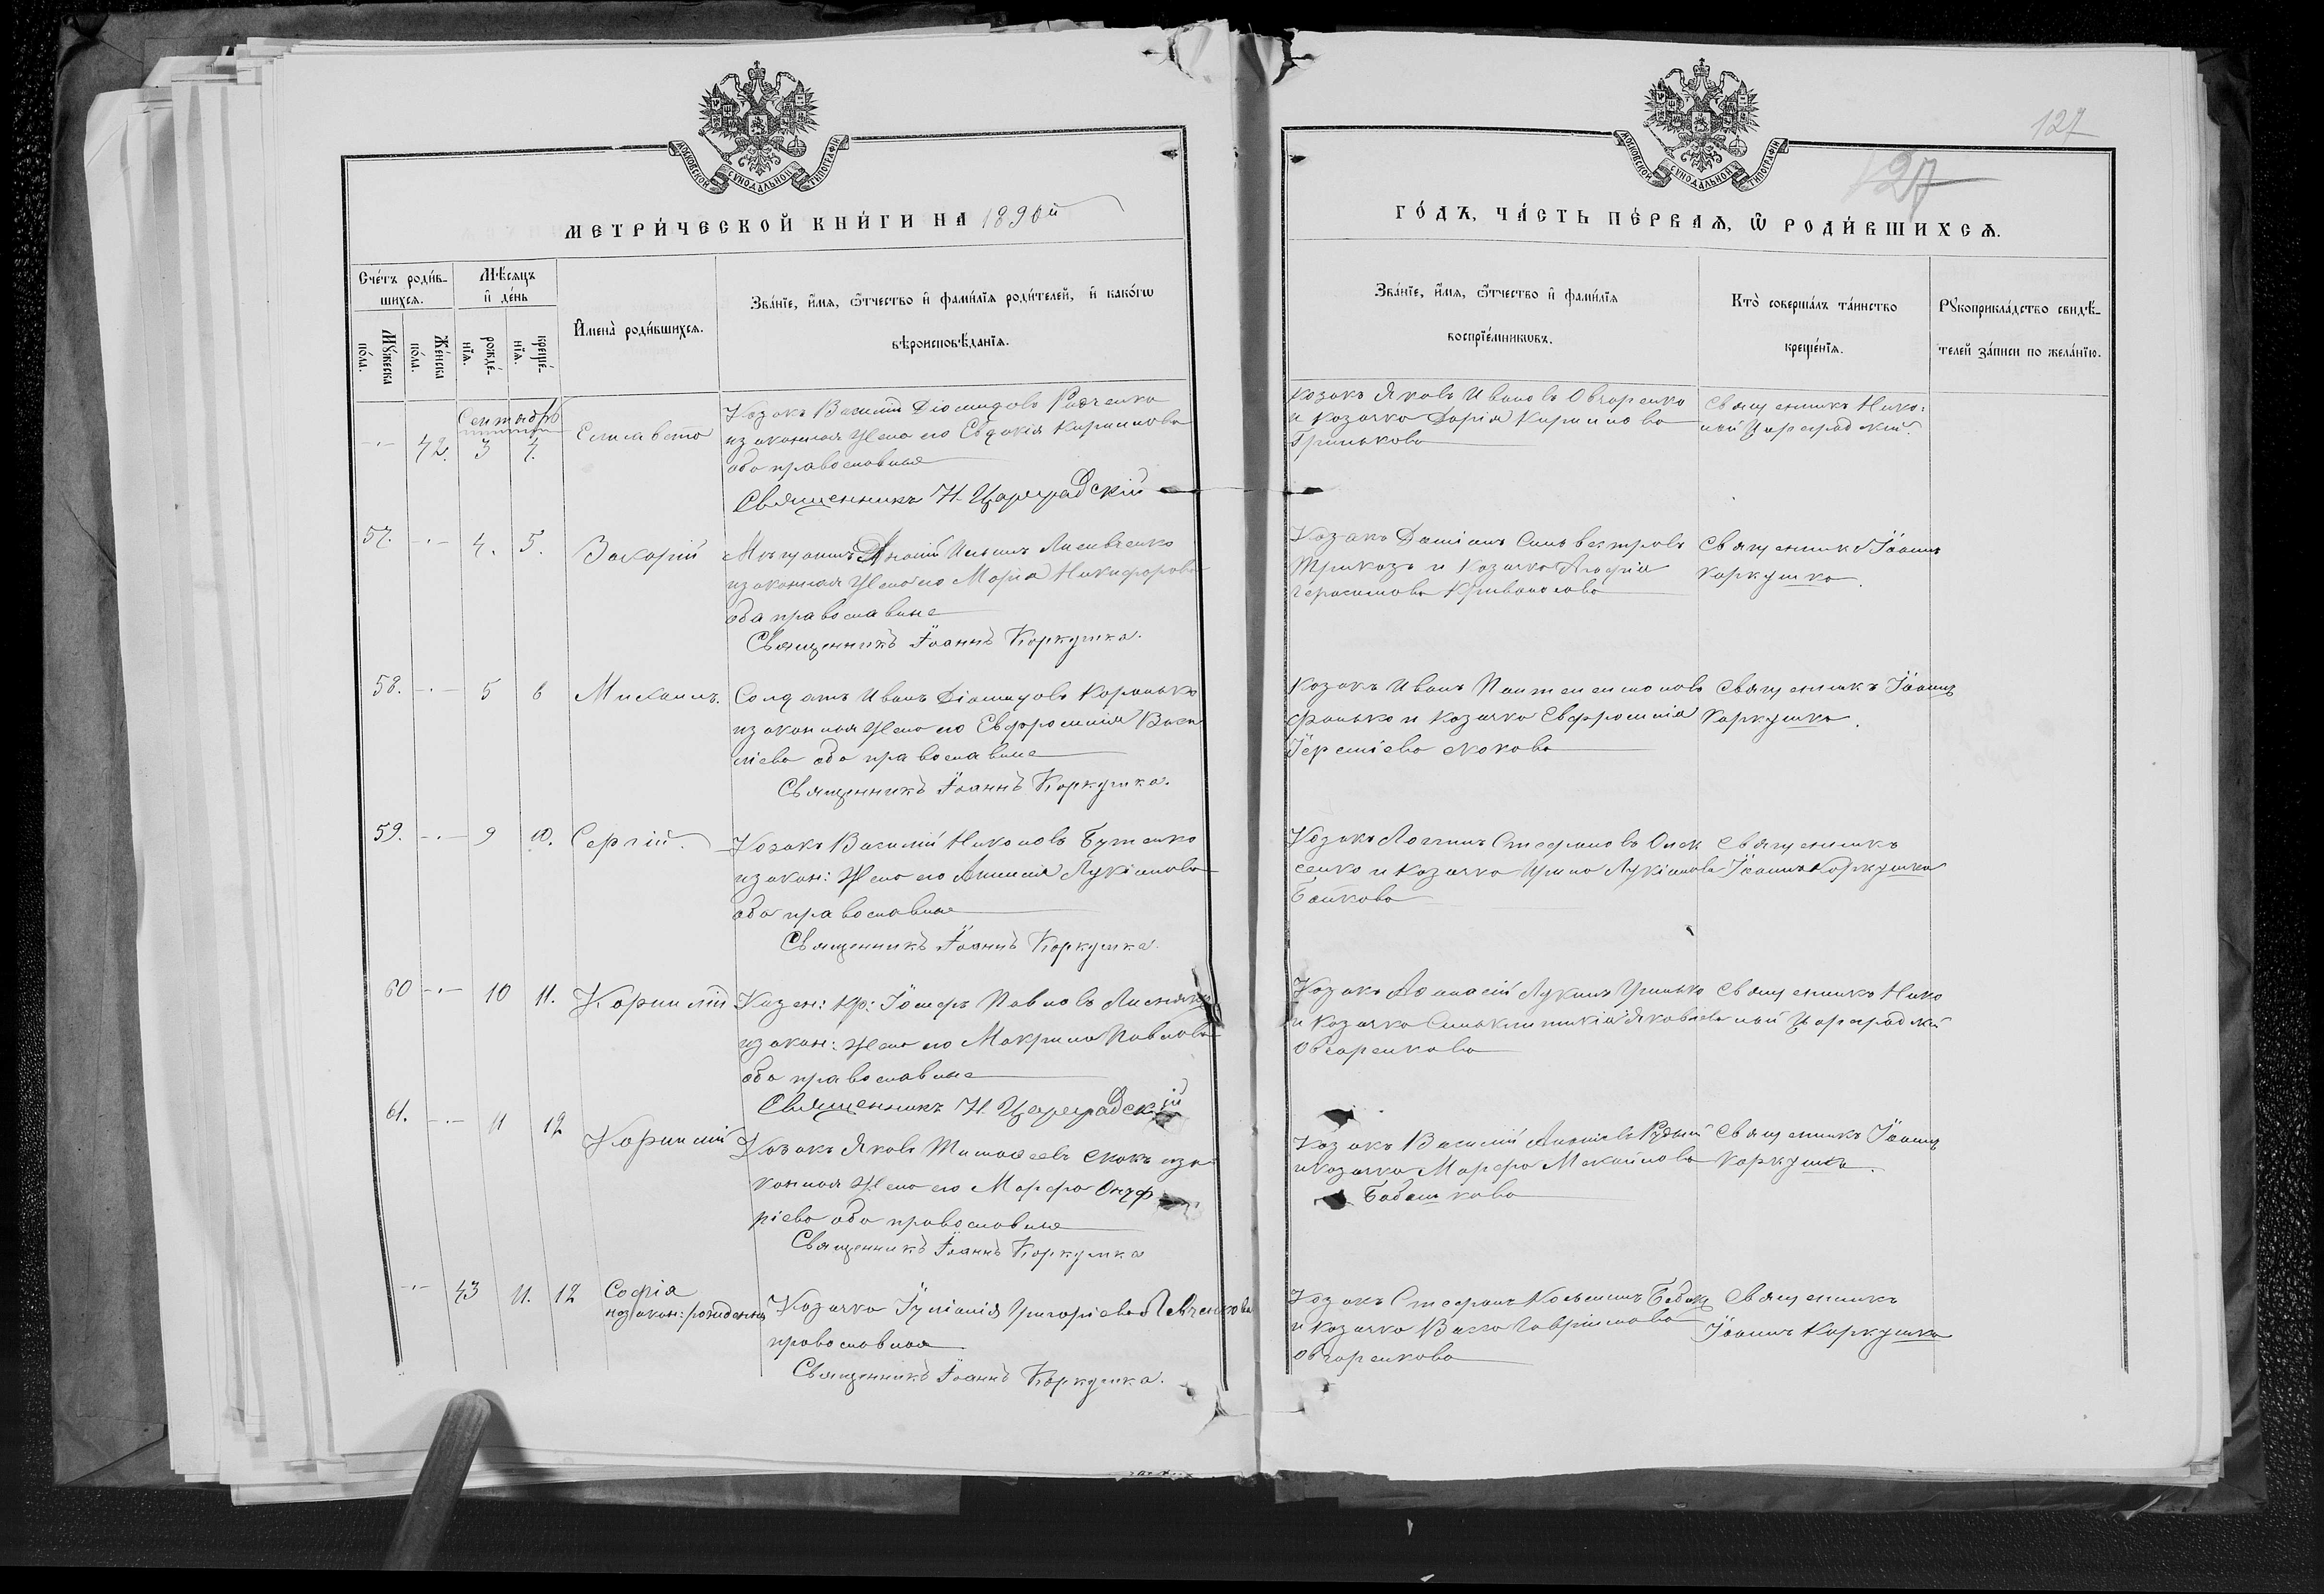 127
127
МОСКОВСКОЙ СУНОДАЛЬНОЙ ТИПОГРАФІИ
МОСКОВСКОЙ СУНОДАЛЬНОЙ ТИПОГРАФІИ
МЕТРИ́ЧЕСКОЙ КНИ́ГИ НА 1890й
ГО́ДЪ, ЧА́СТЬ ПЕ́РВАѦ, Ѡ҆ РОДИ́ВШИХСѦ.
Сче́тъ роди́в-
шихсѧ.
Мѣ́сѧцъ
и҆ де́нь
Мꙋ́жеска
по́ла.
Же́нска
по́ла.
рожде́-
нїѧ.
креще́-
нїѧ.
И҆мена̀ роди́вшихсѧ.
Зва́нїе, и҆́мѧ, ѻ҆́тчество и҆ фами́лїѧ роди́телей, и҆ како́гѡ
вѣроисповѣ́данїѧ.
Зва́нїе, и҆́мѧ, ѻ҆́тчество и҆ фами́лїѧ
воспрїе́мникѡвъ.
Кто̀ соверша́лъ та́инство
креще́нїѧ.
Рꙋкоприкла́дство свидѣ́-
телей за́писи по жела́нїю.
Сентябрь
42. 3 4. Елисавета
Козакъ Василій Діомидовъ Радченко
изаконная жена его Евдокія Кириллова
оба православныя
Священникъ Н. Цареградскій
Козакъ Яковъ Ивановъ Овчаренко
и козачка Дарія Кириллова
Гринькова
Священникъ Нико:
лай Цареградскій.
57. 4. 5. Захарій
Мѣщанинъ Ильинъ
изаконная жена его Марія Никифорова
оба православные
Священникъ Іоаннъ Коркушка.
Козакъ Даміанъ Сильвестровъ
Трикозъ и козачка Агафія
Герасимова Кривоносова
Священникъ Іоаннъ
Каркушка.
58. 5 6 Михаилъ.
Солдатъ Иванъ Діомидовъ Каранько
изаконная жена его Евфросинія Васи
ліева оба православные
Священникъ Іоаннъ Коркушка.
Козакъ Иванъ Пантелеимоновъ
Фанько и козачка Евфросинія
Іереміева Скокова
Священникъ Іоаннъ
Каркушка.
59. 9 10. Сергій.
Козакъ Василій Никоновъ Бутенко
изакон: жена его Лукіанова
оба православныя
Священникъ Іоаннъ Коркушка.
Козакъ Логгинъ Стефановъ Олек
сенко и козачка Ирина Лукіанова
Байкова
Священникъ
Іоаннъ Каркушка
60 10 11. Корнилій
Казен: кр: Іосифъ Павловъ
изакон: жена его Макрина Павлова
оба православные
Священникъ Н. Цареградскій
Козакъ Аѳанасій Лукинъ Гринько
и козачка Синклитикія Яковлева
Овчаренкова
Священникъ Нико
лай Цареградскій
61. 11 12 Корнилій
Козакъ Яковъ Тимоѳеевъ Скокъ иза
конная жена его Марфа Онуф
ріева оба православныя
Священникъ Іоаннъ Коркушка
Козакъ Василій Рудый
икозачка Марфа Михайлова
Бабенкова
Священникъ Іоаннъ
Каркушка.
43 11. 12 Софія
незакон: рожденная
Козачка Іуліанія Григоріева Левченкова
православная
Священникъ Іоаннъ Коркушка.
Козакъ Стефанъ Косьминъ
и козачка Васса Гавріилова
Овчаренкова
Священникъ
Іоаннъ Каркушка